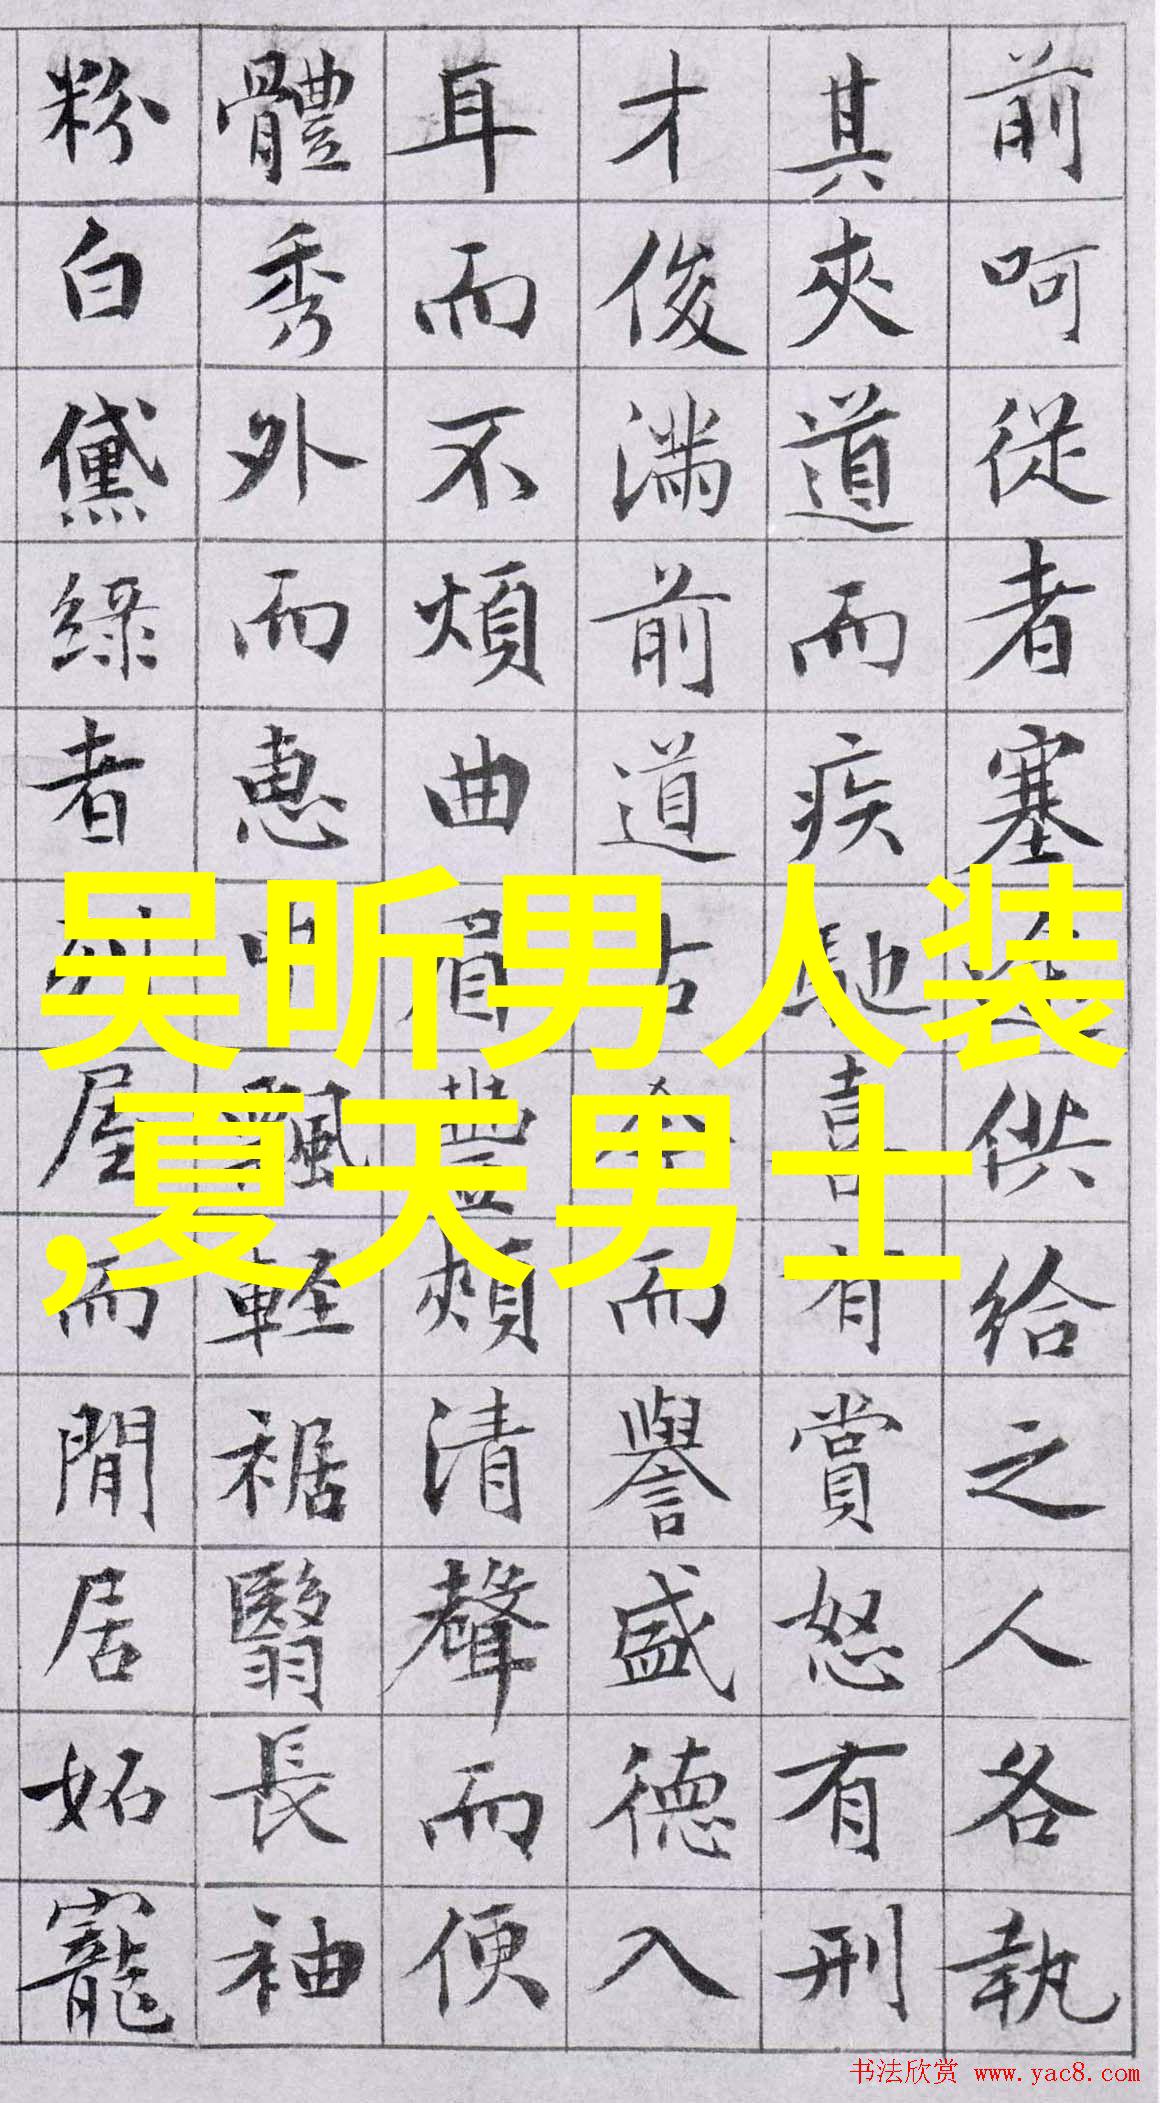 前呵從者塞供給之人各執
其夾道而疾馳喜有賞怒有刑
才俊滿前道古而譽盛徳入
耳而不煩曲眉豐頰清聲而便
體秀外而惠中飄軽裾翳長袖
粉白黛緑者屋而閒居妬寵
吴昕男人装
,夏天男士
书法欣赏 www.yac8.com